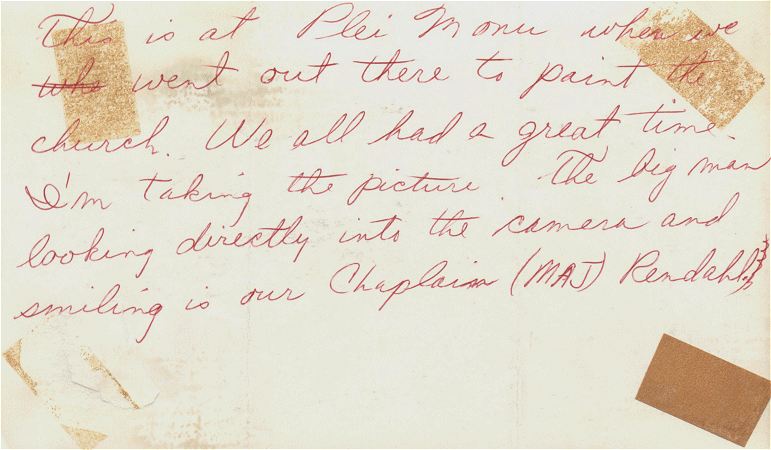 This is at Plei Monu when we
who went out there to paint the
church. We all had a great time.
I'm taking the picture. The big man
looking directly into the camera and
smiling is our Chaplain (MAJ) Rendahl.